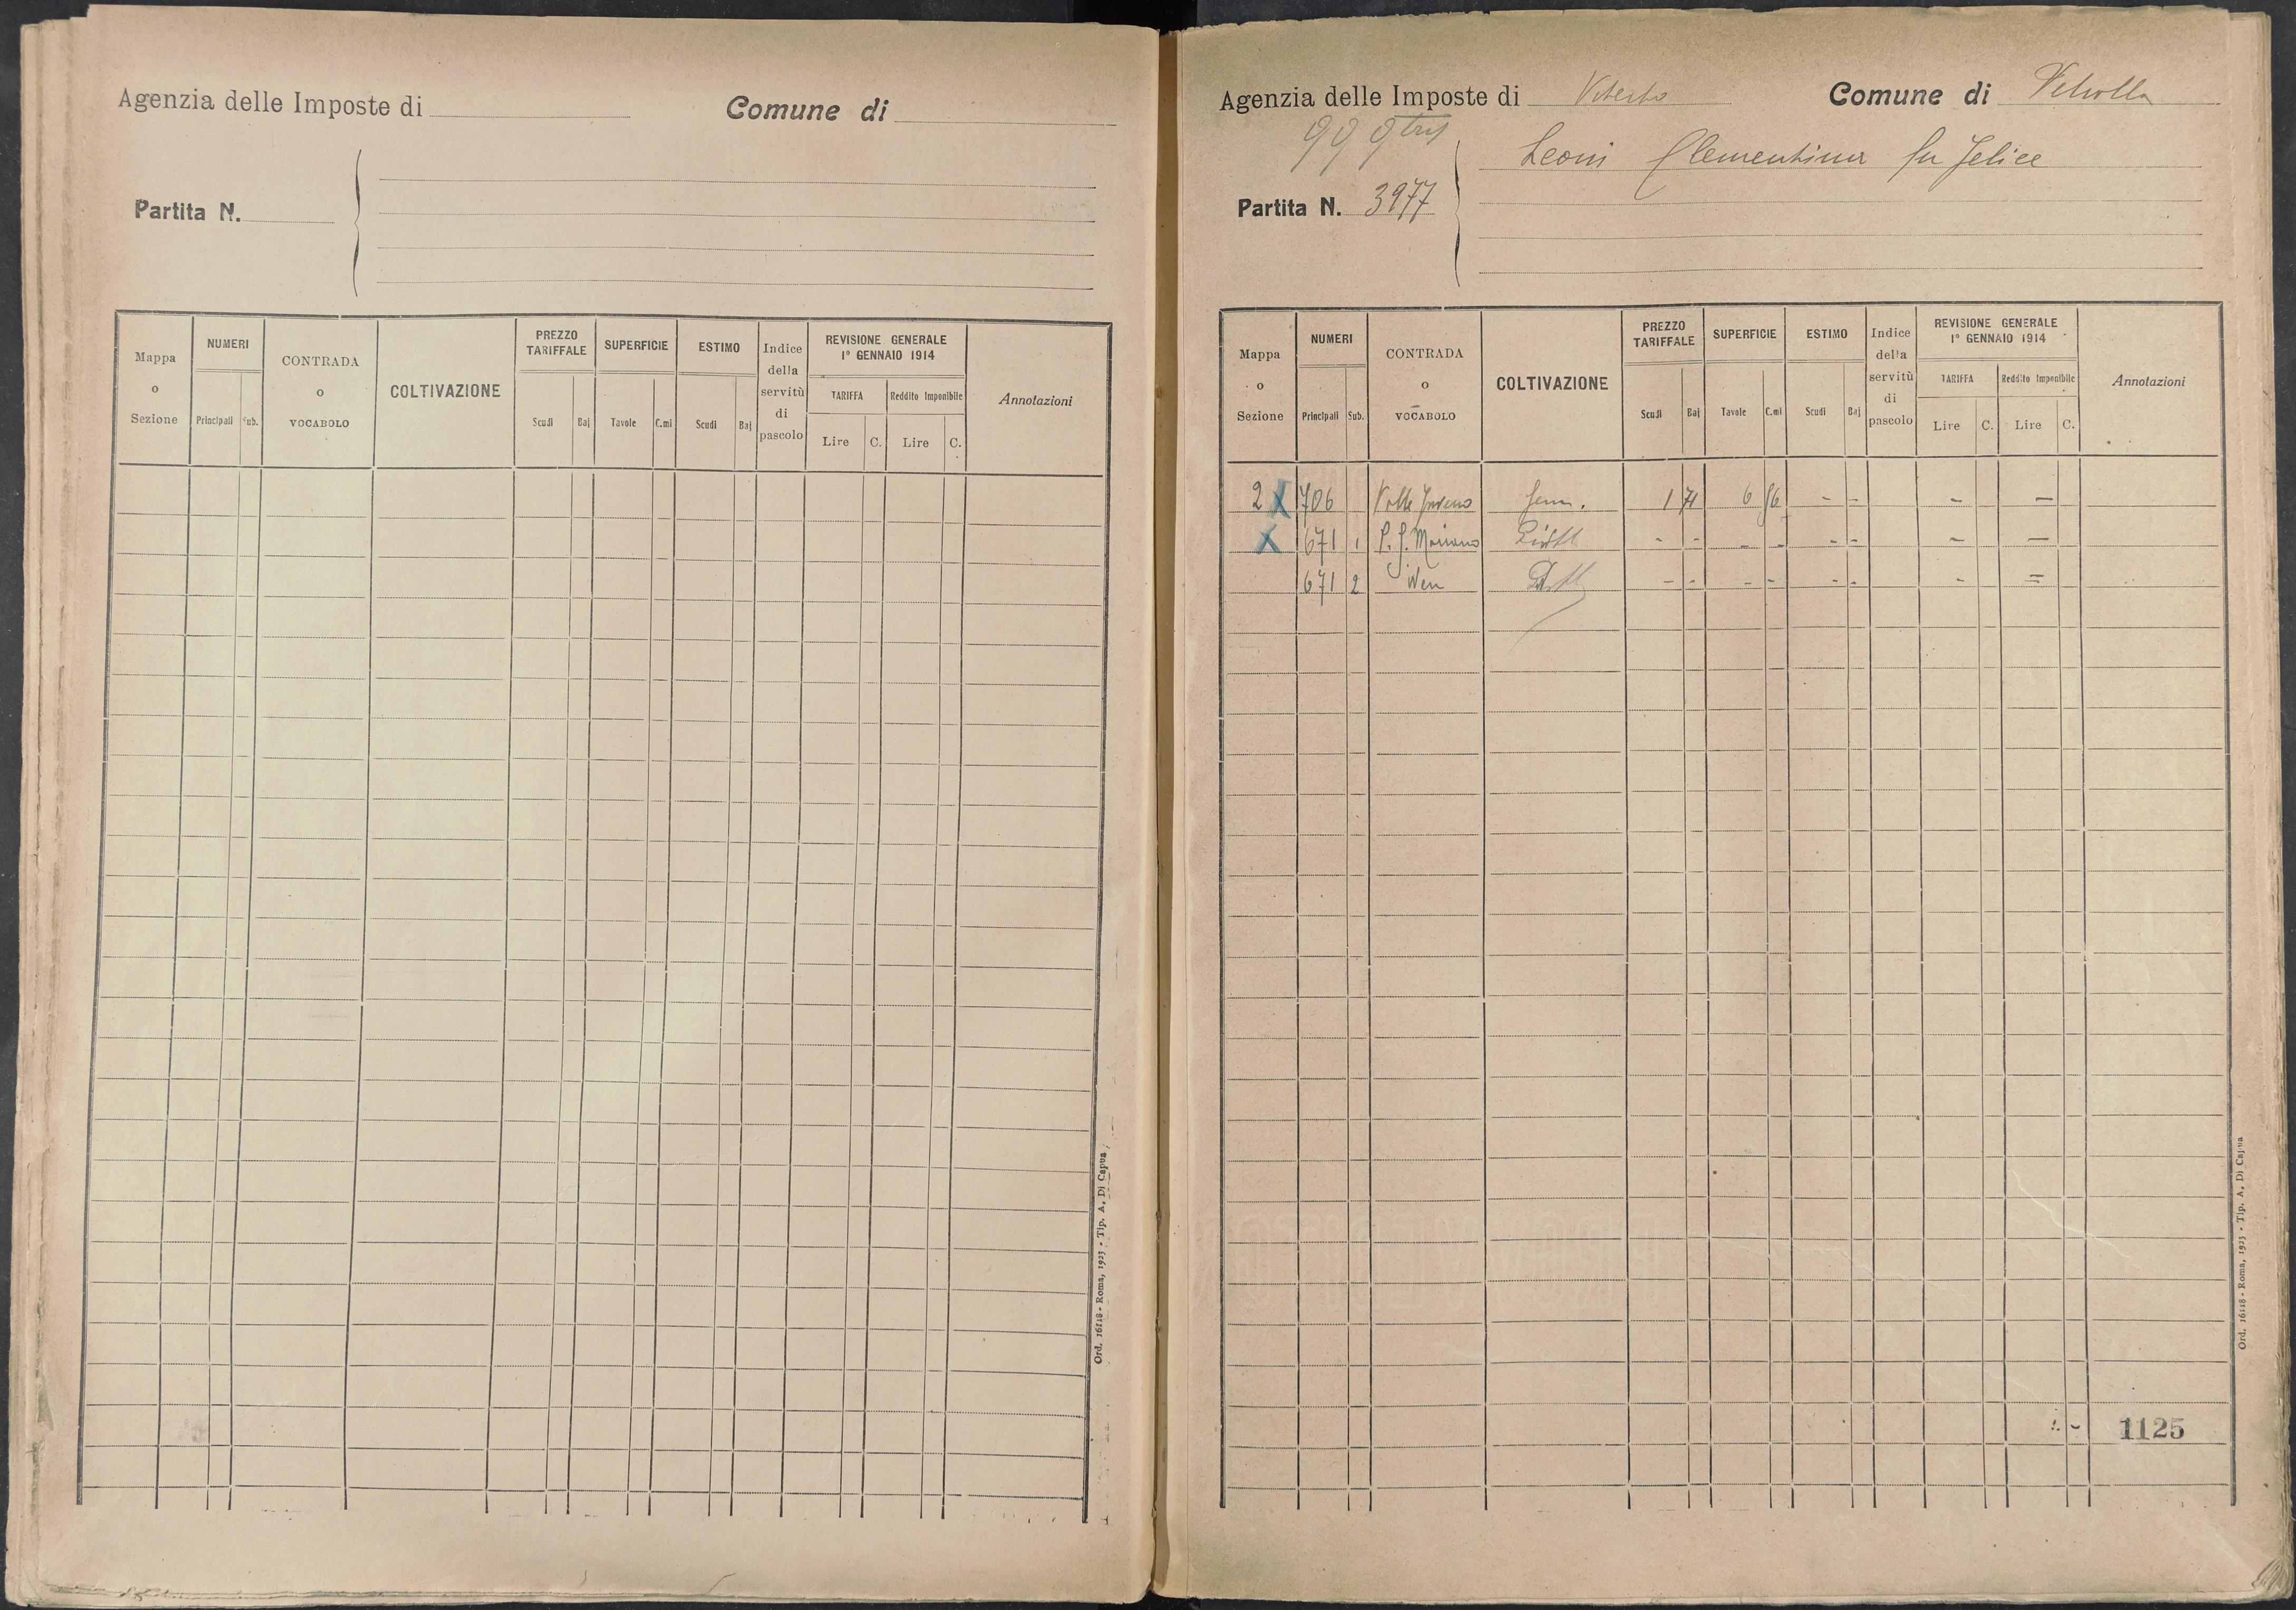 Agenzia delle Imposte di
Comune di
Partita N.
Mappa o Sezione
NUMERI
Principali Sub.
CONTRADA o VOCABOLO
COLTIVAZIONE
PREZZO TARIFFALE
Scudi Baj
SUPERFICIE
Tavole C.mi
ESTIMO
Scudi Baj
Indice della servitù di pascolo
REVISIONE GENERALE
1° GENNAIO 1914
TARIFFA Reddito Imponibile
Lire C. Lire C.
Annotazioni
Ord. 16118 - Roma, 1923 - Tip. A. Di Capua
Agenzia delle Imposte di Viterbo Comune di Vetralla
999
Leoni Clementina fu Felice
Partita N. 3977
Mappa o Sezione
NUMERI
Principali Sub.
CONTRADA o VOCABOLO
COLTIVAZIONE
PREZZO TARIFFALE
Scudi Baj
SUPERFICIE
Tavole C.mi
ESTIMO
Scudi Baj
Indice della servitù di pascolo
REVISIONE GENERALE
1° GENNAIO 1914
TARIFFA Reddito Imponibile
Lire C. Lire C.
Annotazioni
2 X 706 Valle Sem. 1 71 6 - - - -
X 671 1 - - - - - - - -
671 2 Idem - - - - - - - =
1125
Ord. 16118 - Roma, 1923 - Tip. A. Di Capua